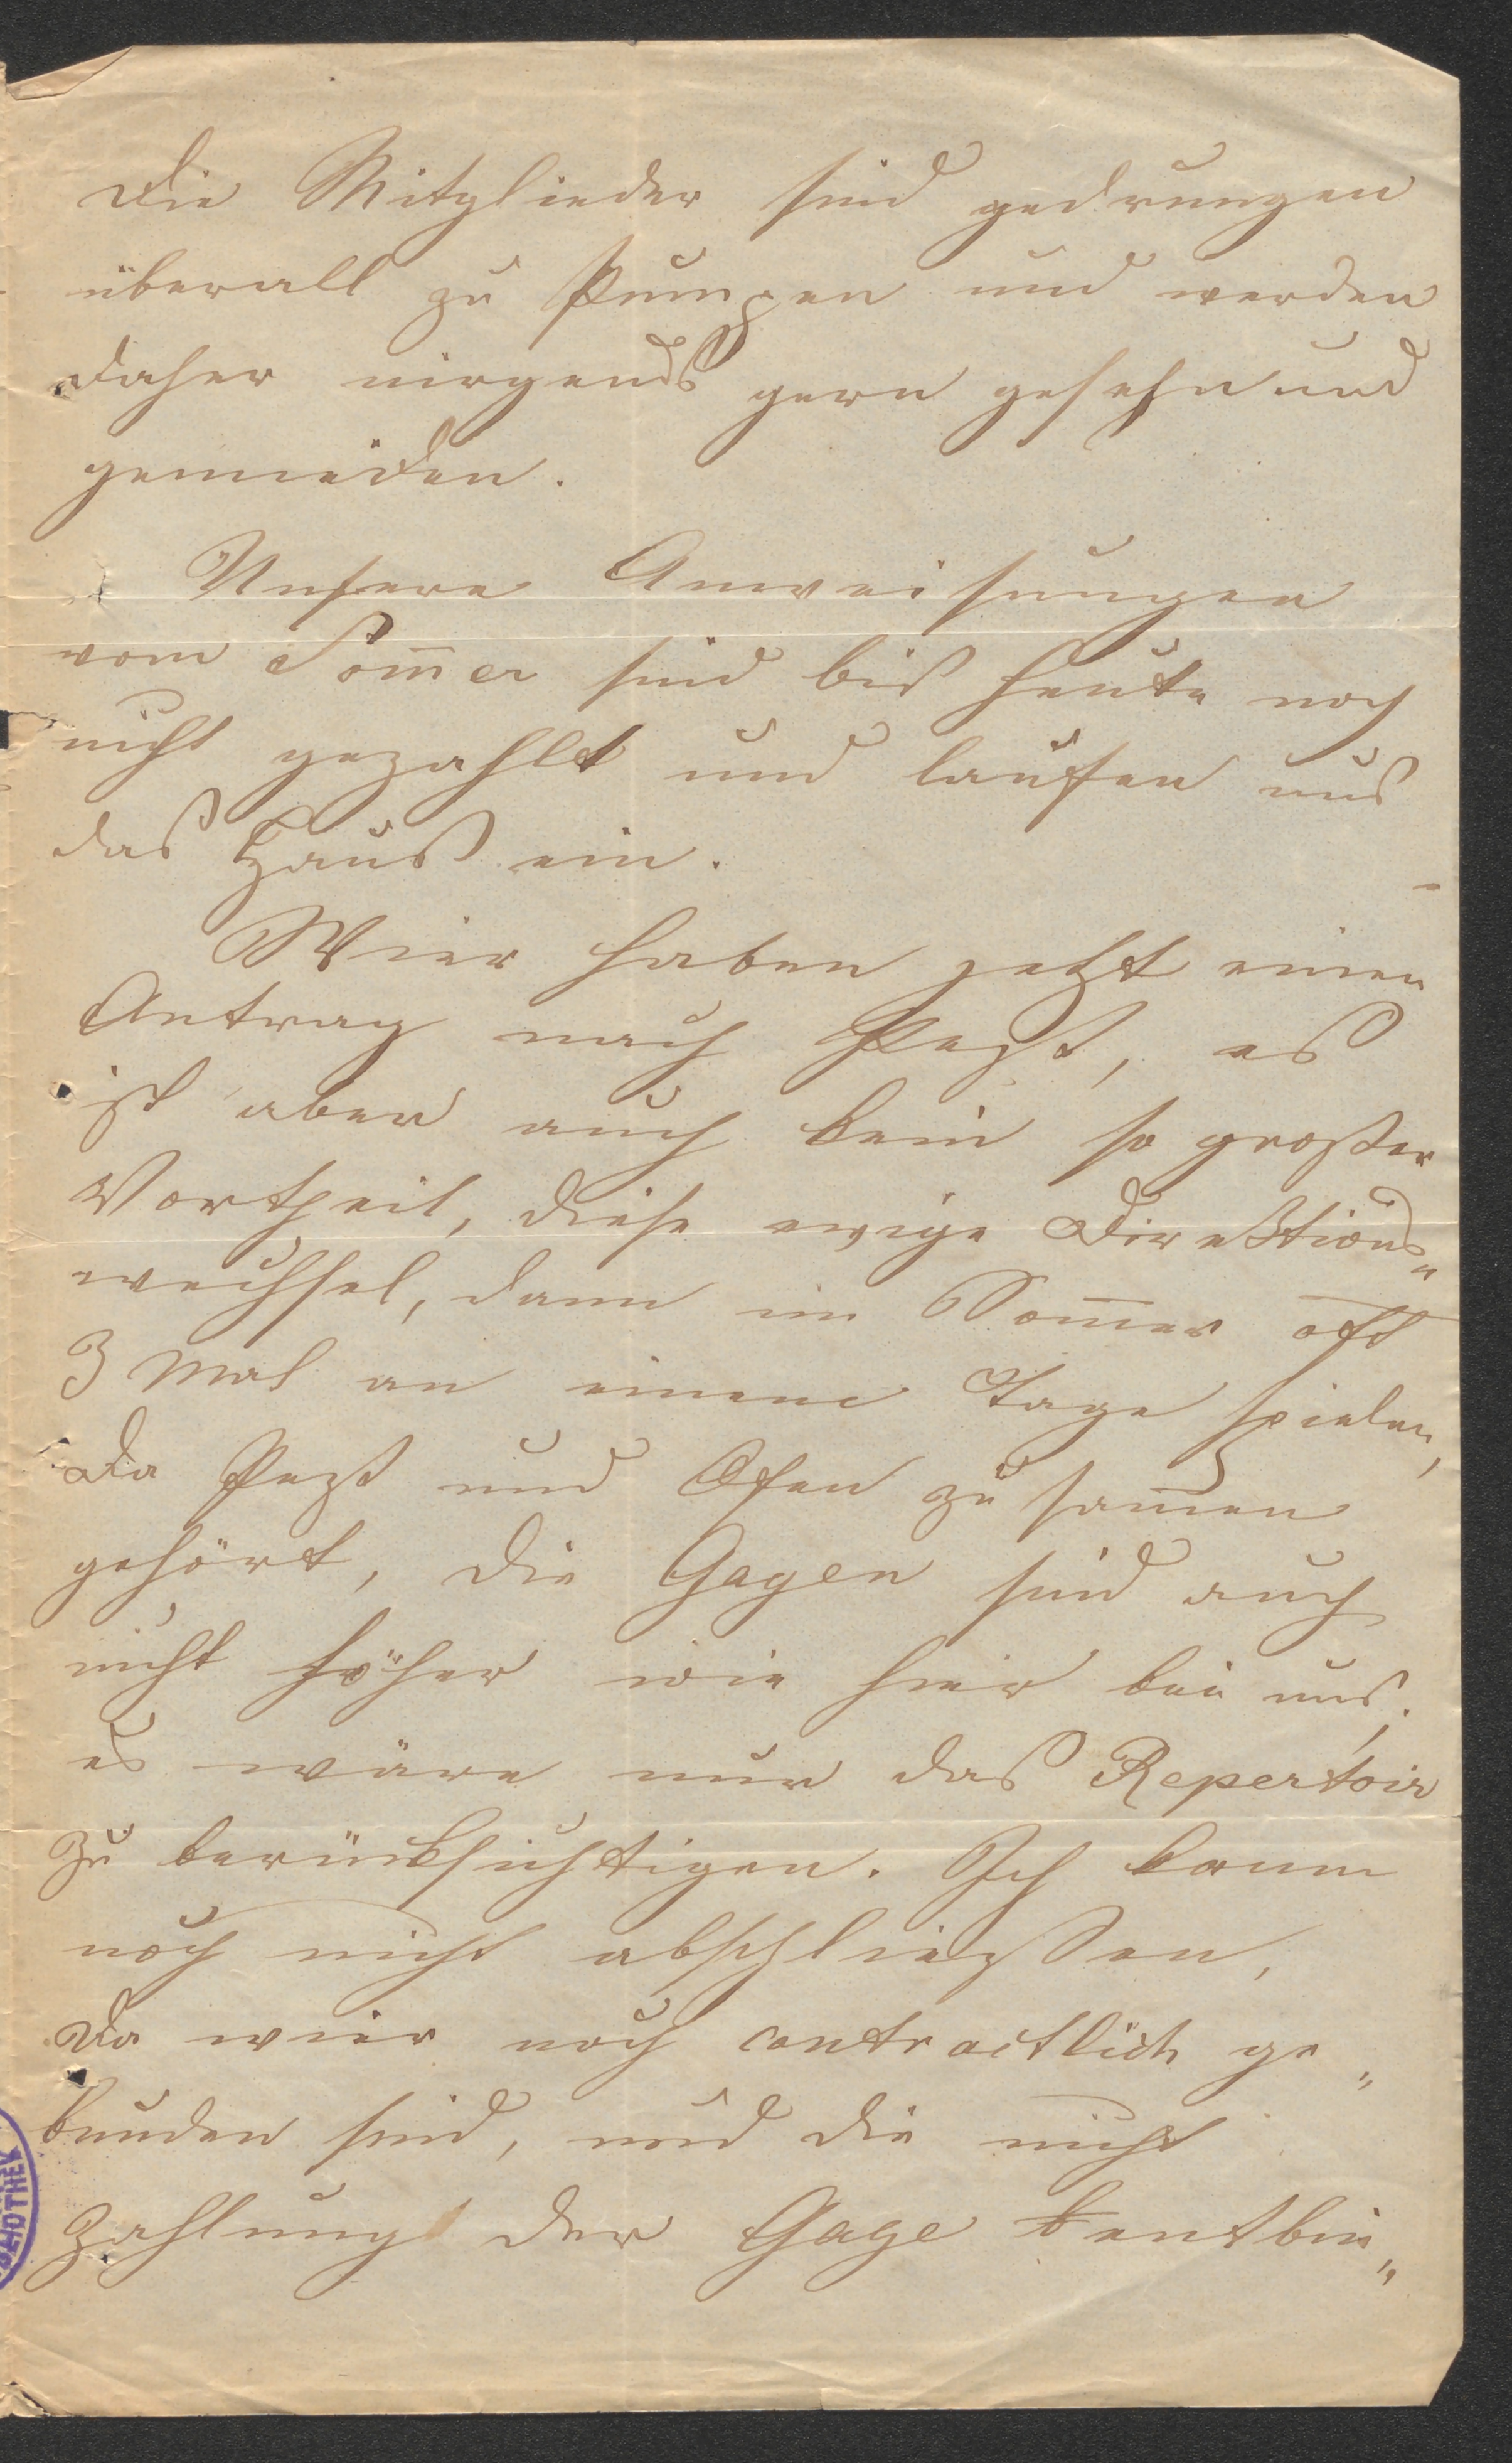 Die Mitglieder sind gedrungen
überall zu Pumpen und werden
daher nirgends gern gesehn und
gemieden.
Unsere Anweisungen
vom Som̅er sind bis heute noch
nicht gezahlt und laufen uns
das Hauß ein.
Wier haben jetzt einen
Antrag nach Pest, es
ist aber auch kein so großer
Vortheil, diese ewige Direktions„
wechsel, dann im Som̅er oft
3 Mal an einem Tage spielen,
da Pest und Ofen zu sam̅en
gehört, die Gagen sind auch
nicht höher wie hier bei uns,
es wäre nur das Repertoir
zu berücksichtigen. Ich kann
noch nicht abschließen,
da wier noch contractlich ge„
bunden sind, und die nicht
Zahlung der Gage entbin„
BLIOTHEK